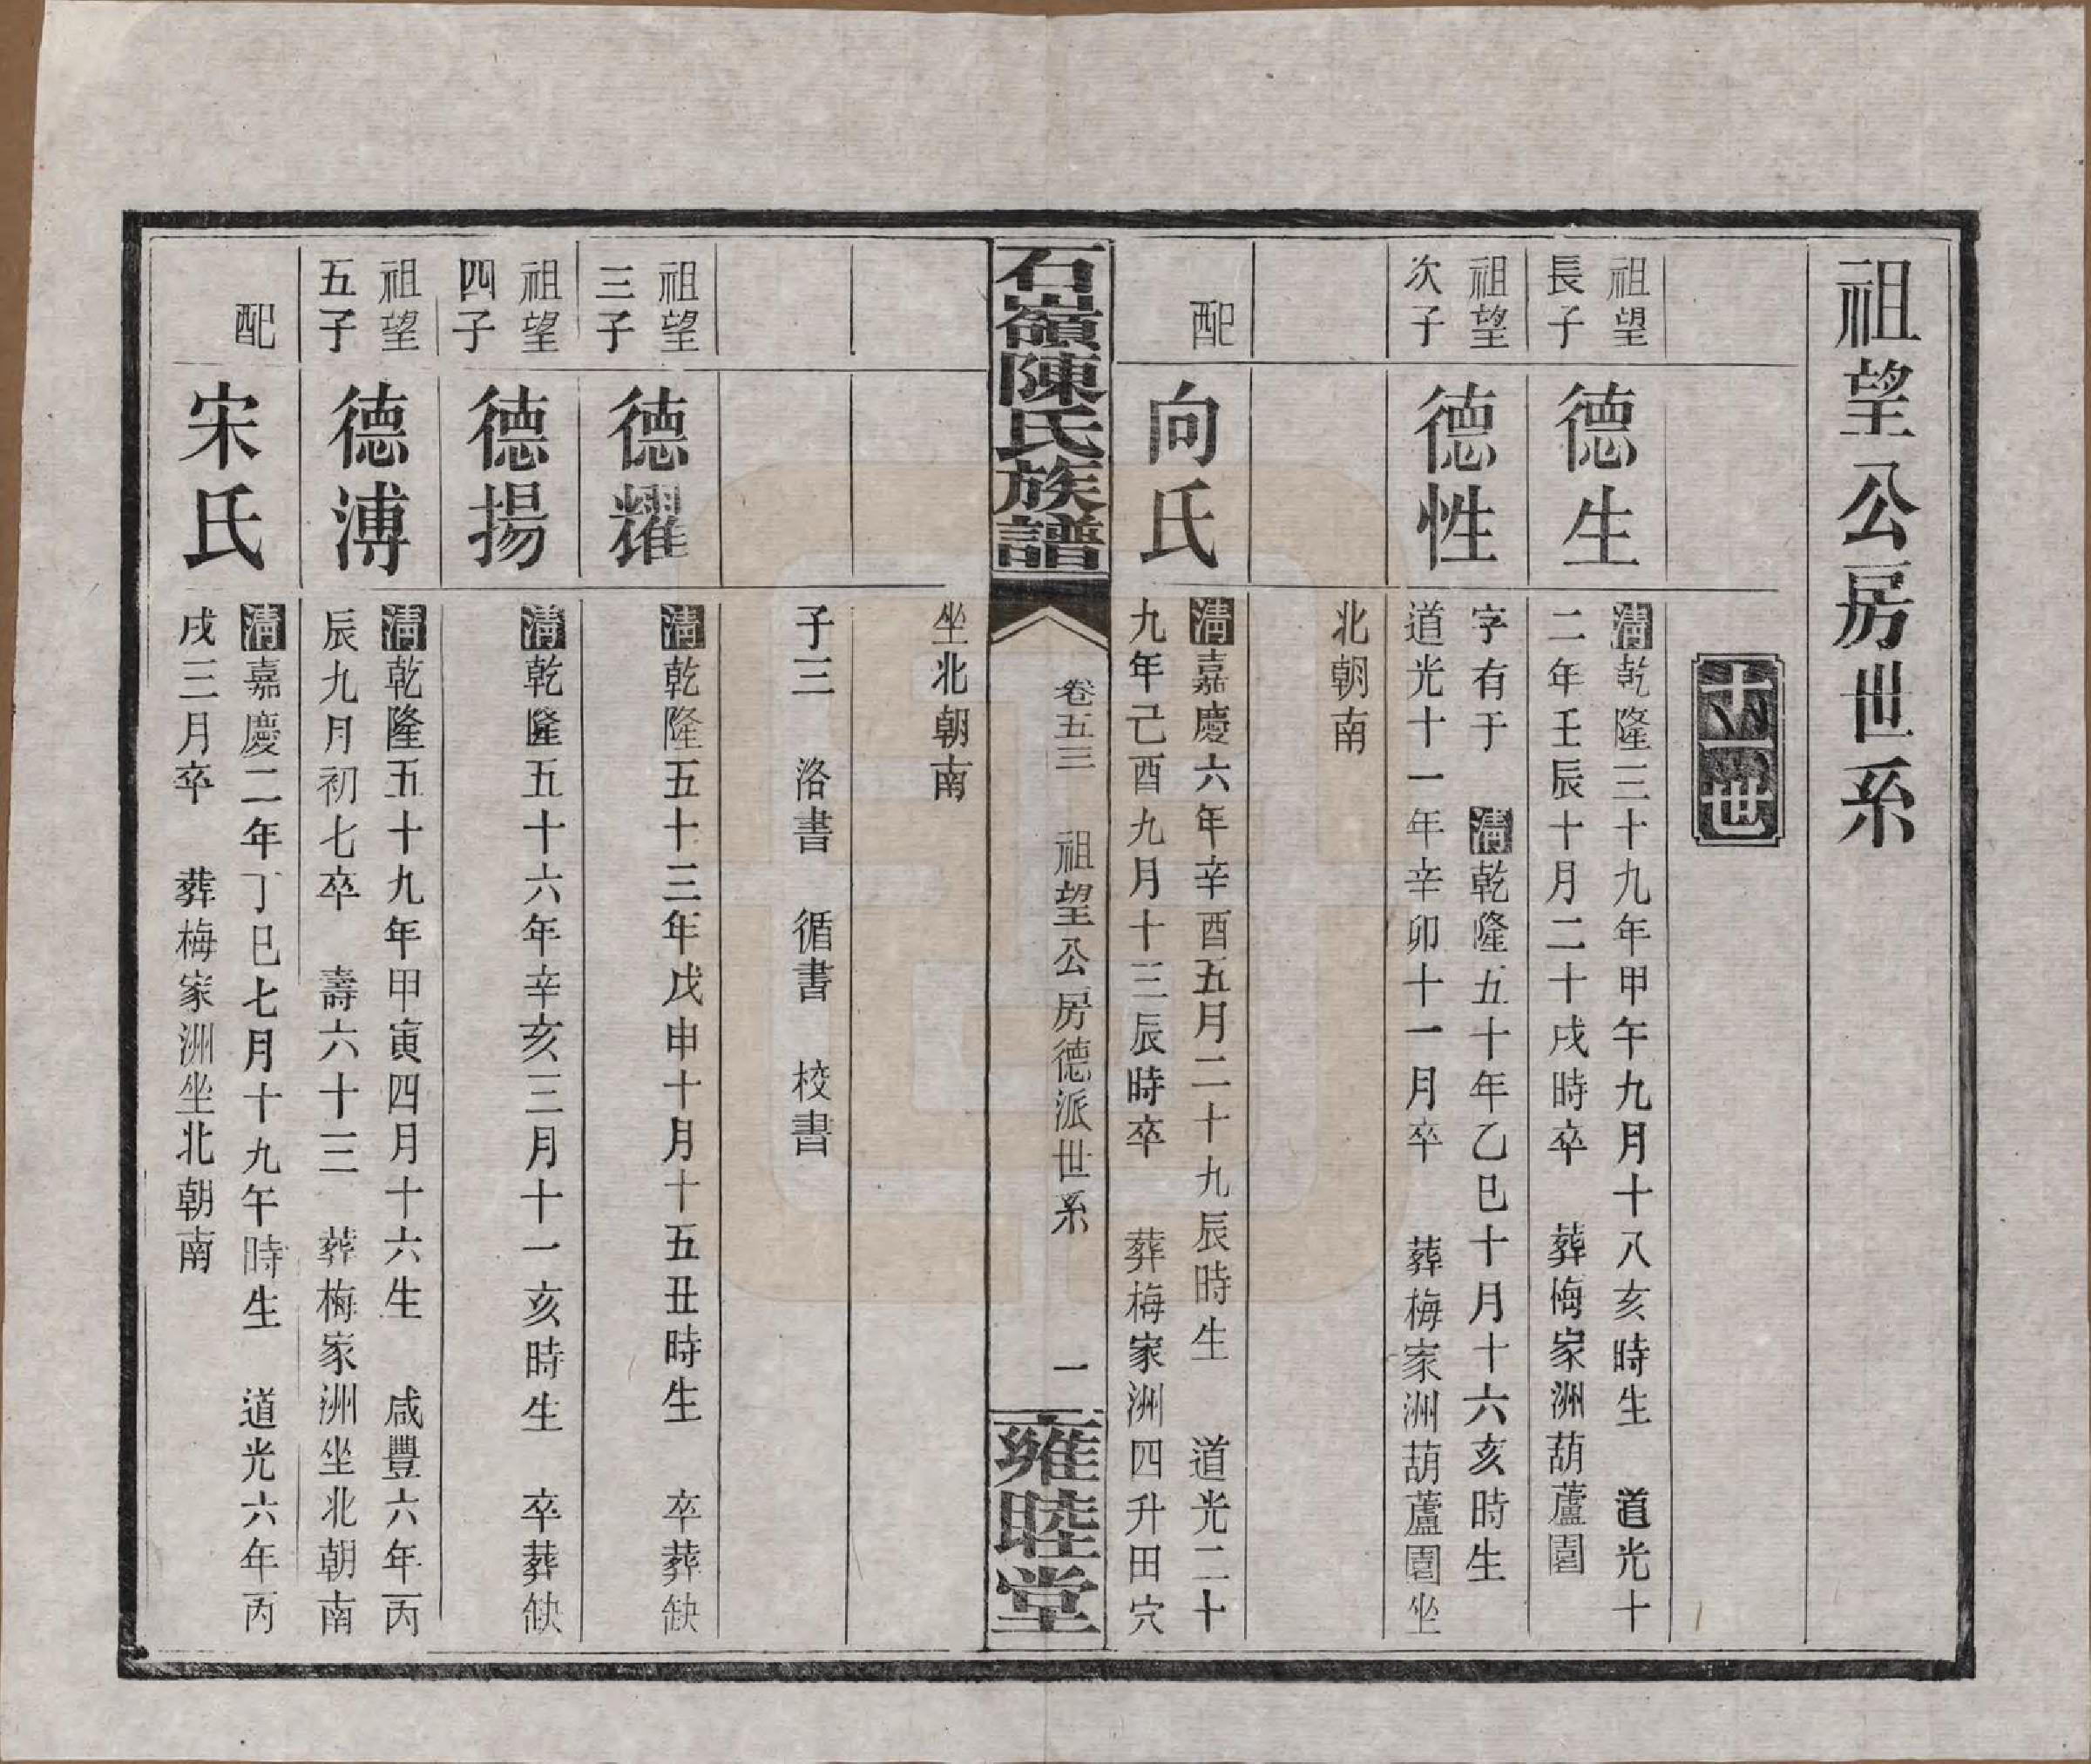 祖望公房世系
十一世
祖望
長子
德生
清乾隆三十九年甲午九月十八亥時生　道光十
二年壬辰十月二十戌時卒　葬梅家洲葫蘆園
祖望
次子
德性
字有于　清乾隆五十年乙巳十月十六亥時生
道光十一年辛卯十一月卒　葬梅家洲葫蘆園坐
北朝南
配
向氏
清嘉慶六年辛酉五月二十九辰時生　道光二十
九年己酉九月十三辰時卒　葬梅家洲四升田穴
石嶺陳氏族譜
卷五三　祖望公房德派世系　一
雍睦堂
坐北朝南
子三　洛書　循書　校書
祖望
三子
德耀
清乾隆五十三年戊申十月十五丑時生　卒葬缺
祖望
四子
德揚
清乾隆五十六年辛亥三月十一亥時生　卒葬缺
祖望
五子
德溥
清乾隆五十九年甲寅四月十六生　咸豐六年丙
辰九月初七卒　壽六十三　葬梅家洲坐北朝南
配
宋氏
清嘉慶二年丁巳七月十九午時生　道光六年丙
戌三月卒　葬梅家洲坐北朝南